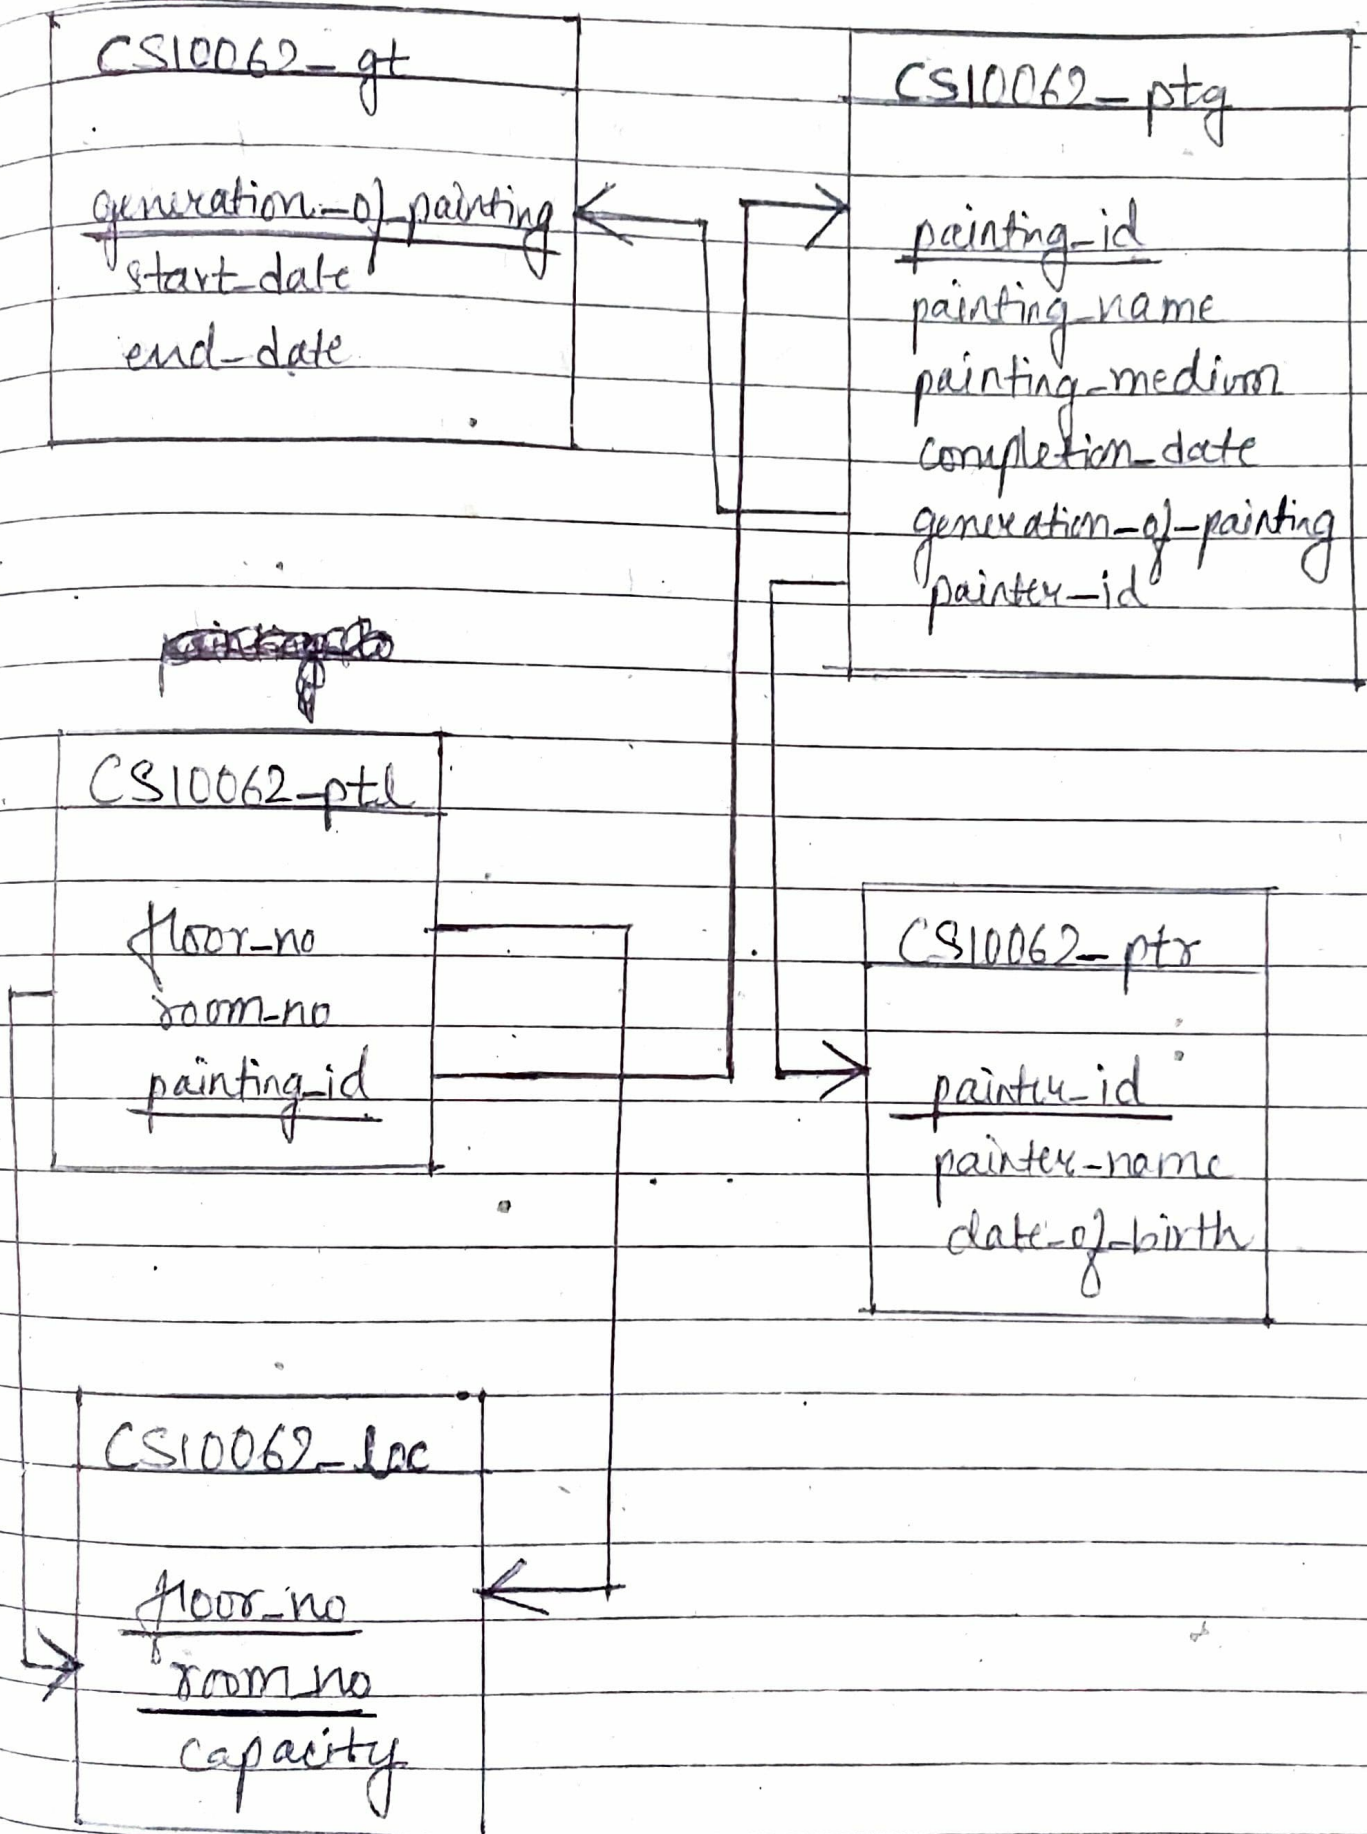 CS10062_gt
generation_of_painting
start_date
end_date
CS10062_ptg
painting_id
painting_name
painting_medium
completion_date
generation_of_painting
painter_id
CS10062_ptl
floor_no
room_no
painting_id
CS10062_ptr
painter_id
painter_name
date_of_birth
CS10062_loc
floor_no
room_no
capacity